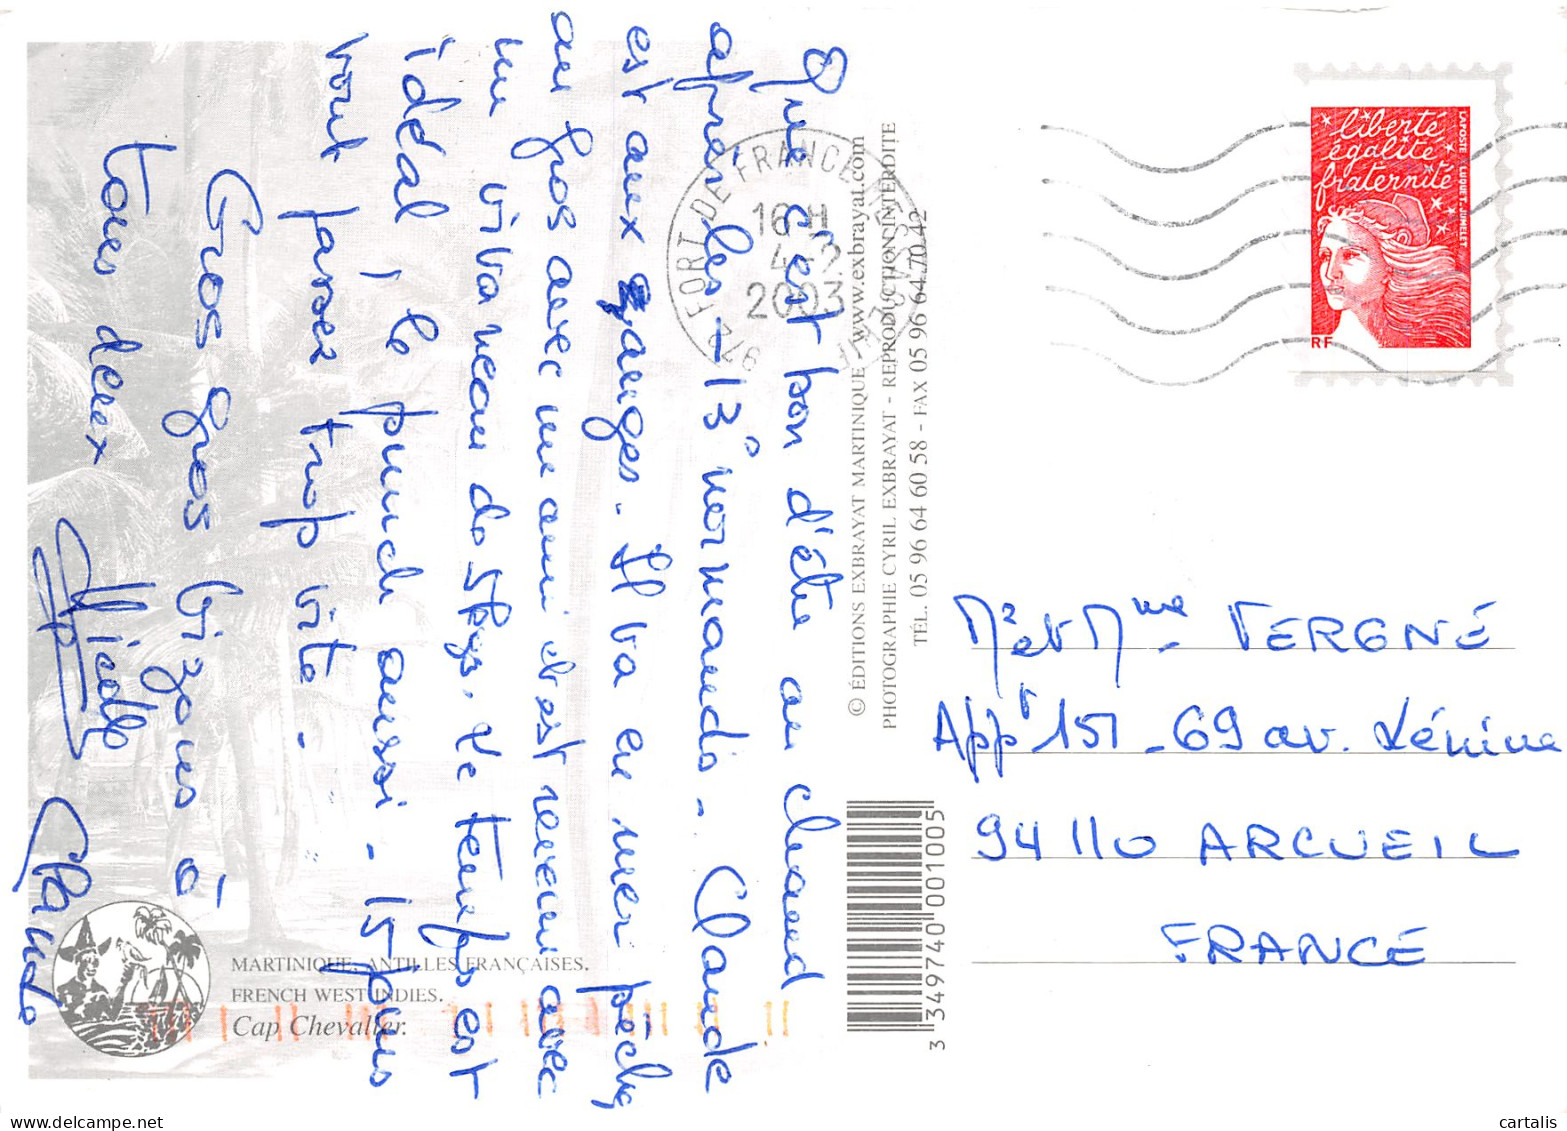 Que c'est bon d'être au chaud
après les -13° normands. Claude
est aux anges. Il va en mer pêcher
au gros avec un ami et est revenu avec
un vivaneau de 5kgs. Le temps est
idéal, le punch aussi. 15 jours
vont passer trop vite.
Gros gros bizous à
tous deux
Nicole
Claude
MARTINIQUE. ANTILLES FRANÇAISES.
FRENCH WEST INDIES.
Cap Chevalier.
© ÉDITIONS EXBRAYAT MARTINIQUE www.exbrayat.com
PHOTOGRAPHIE CYRIL EXBRAYAT - REPRODUCTION INTERDITE
TÉL. 05 96 64 60 58 - FAX 05 96 64 70 42
3 349740 001005
972 FORT DE FRANCE
16 H
2003
liberté
égalité
fraternité
LA POSTE LUQUET-JUMELET
RF
Mr et Mme VERGNÉ
Appt 151 - 69 av. Lénine
94110 ARCUEIL
FRANCE
cartalis